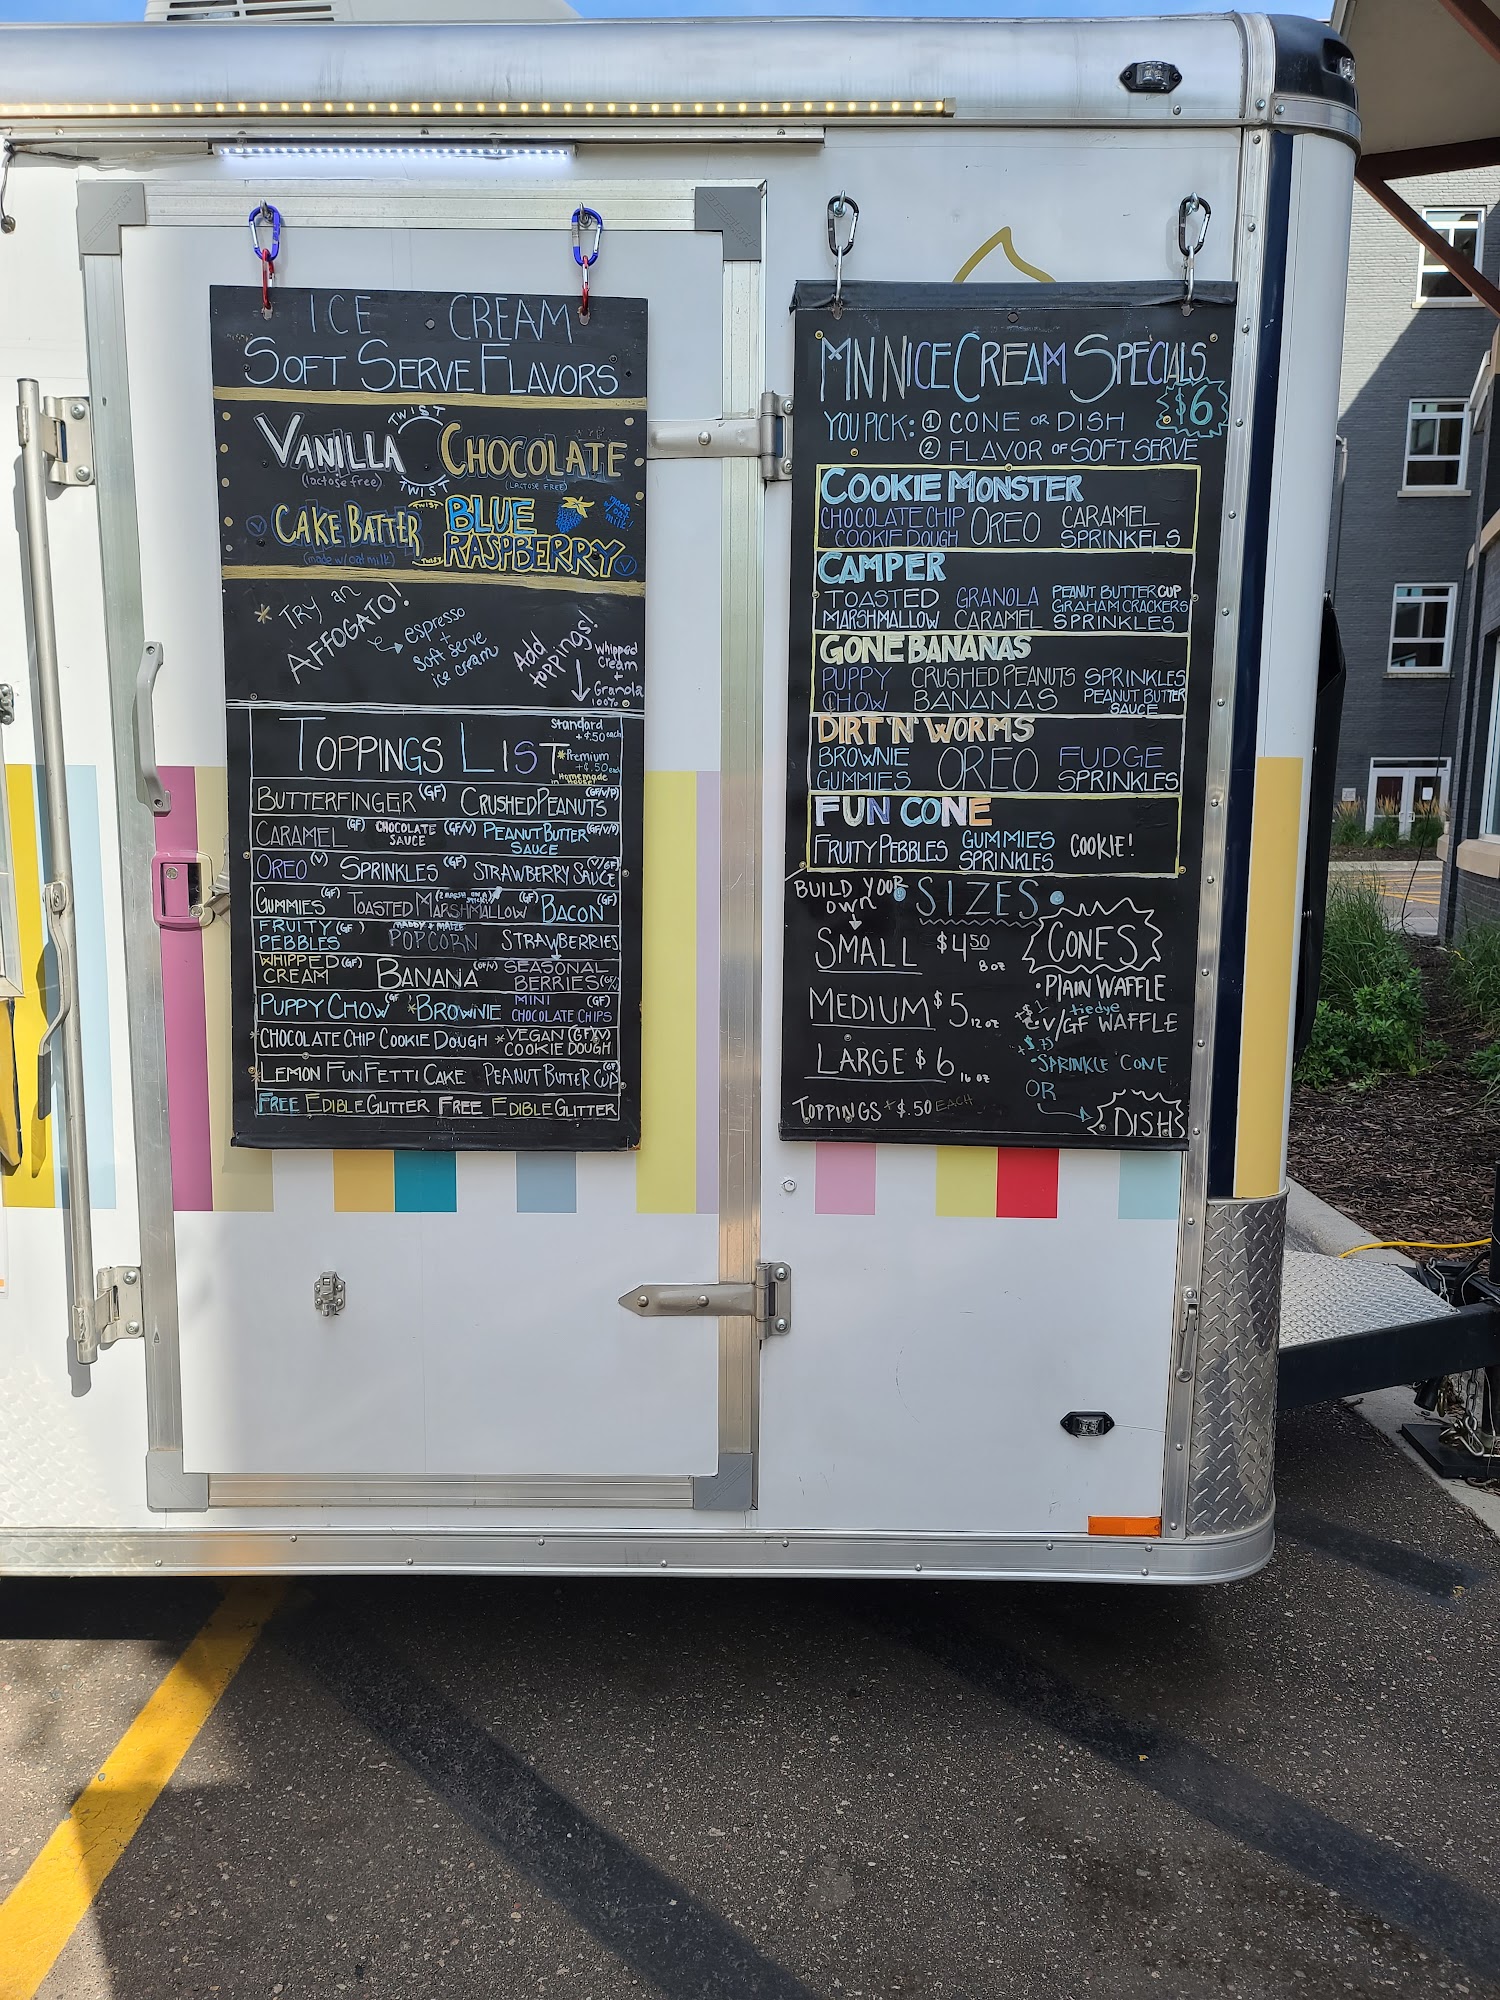 ICE CREAM
SOFT SERVE FLAVORS
VANILLA TWIST CHOCOLATE
(lactose free) TWIST (LACTOSE FREE)
V CAKE BATTER TWIST BLUE RASPBERRY made w/ oat milk! V
(made w/ oat milk) TWIST
* TRY an AFFOGATO!
espresso
+
soft serve
ice cream
Add toppings!
whipped
cream
+
Granola
TOPPINGS LIST
Standard
+$.50 each
*Premium
Homemade
BUTTERFINGER (GF) CRUSHED PEANUTS (GF/V/P)
CARAMEL (GF) CHOCOLATE SAUCE (GF/V) PEANUT BUTTER SAUCE (GF/V/P)
OREO (V) SPRINKLES (GF) STRAWBERRY SAUCE (V/GF)
GUMMIES (GF) TOASTED MARSHMALLOW (GF) BACON (GF)
FRUITY PEBBLES (GF) POPCORN STRAWBERRIES
WHIPPED CREAM (GF) BANANA (GF/V) SEASONAL BERRIES
PUPPY CHOW GF *BROWNIE MINI CHOCOLATE CHIPS (GF)
*CHOCOLATE CHIP COOKIE DOUGH *VEGAN (GF)(V) COOKIE DOUGH
*LEMON FUNFETTI CAKE PEANUT BUTTER CUP GF
FREE EDIBLE GLITTER FREE EDIBLE GLITTER
MN NICE CREAM SPECIALS
$6
YOU PICK: ① CONE OR DISH
② FLAVOR OF SOFT SERVE
COOKIE MONSTER
CHOCOLATE CHIP COOKIE DOUGH OREO CARAMEL SPRINKELS
CAMPER
TOASTED MARSHMALLOW GRANOLA CARAMEL PEANUT BUTTER CUP GRAHAM CRACKERS SPRINKLES
GONE BANANAS
PUPPY CHOW CRUSHED PEANUTS BANANAS SPRINKLES PEANUT BUTTER SAUCE
DIRT 'N' WORMS
BROWNIE GUMMIES OREO FUDGE SPRINKLES
FUN CONE
FRUITY PEBBLES GUMMIES SPRINKLES COOKIE!
BUILD YOUR OWN
SIZES
SMALL $4.50 8 oz
MEDIUM $5 12 oz
LARGE $6 16 oz
TOPPINGS +$.50 EACH
CONES
• PLAIN WAFFLE
tiedye
V/GF WAFFLE
+$.75
•SPRINKLE CONE
OR
DISH